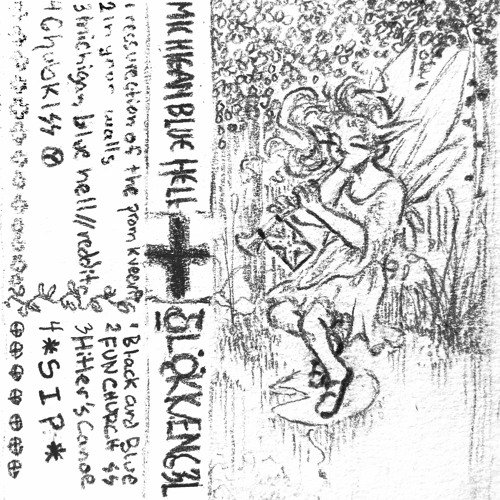 MICHIGAN BLUE HELL
1 ressurection of the prom kweenz
2 in your walls
3 michigan blue hell//reddit
4 Ghuidkiss
BLÖKVENG3L
1 Black and Blue
2 FUN CHURCH
3 Hitler's Canoe
4 *SIP*